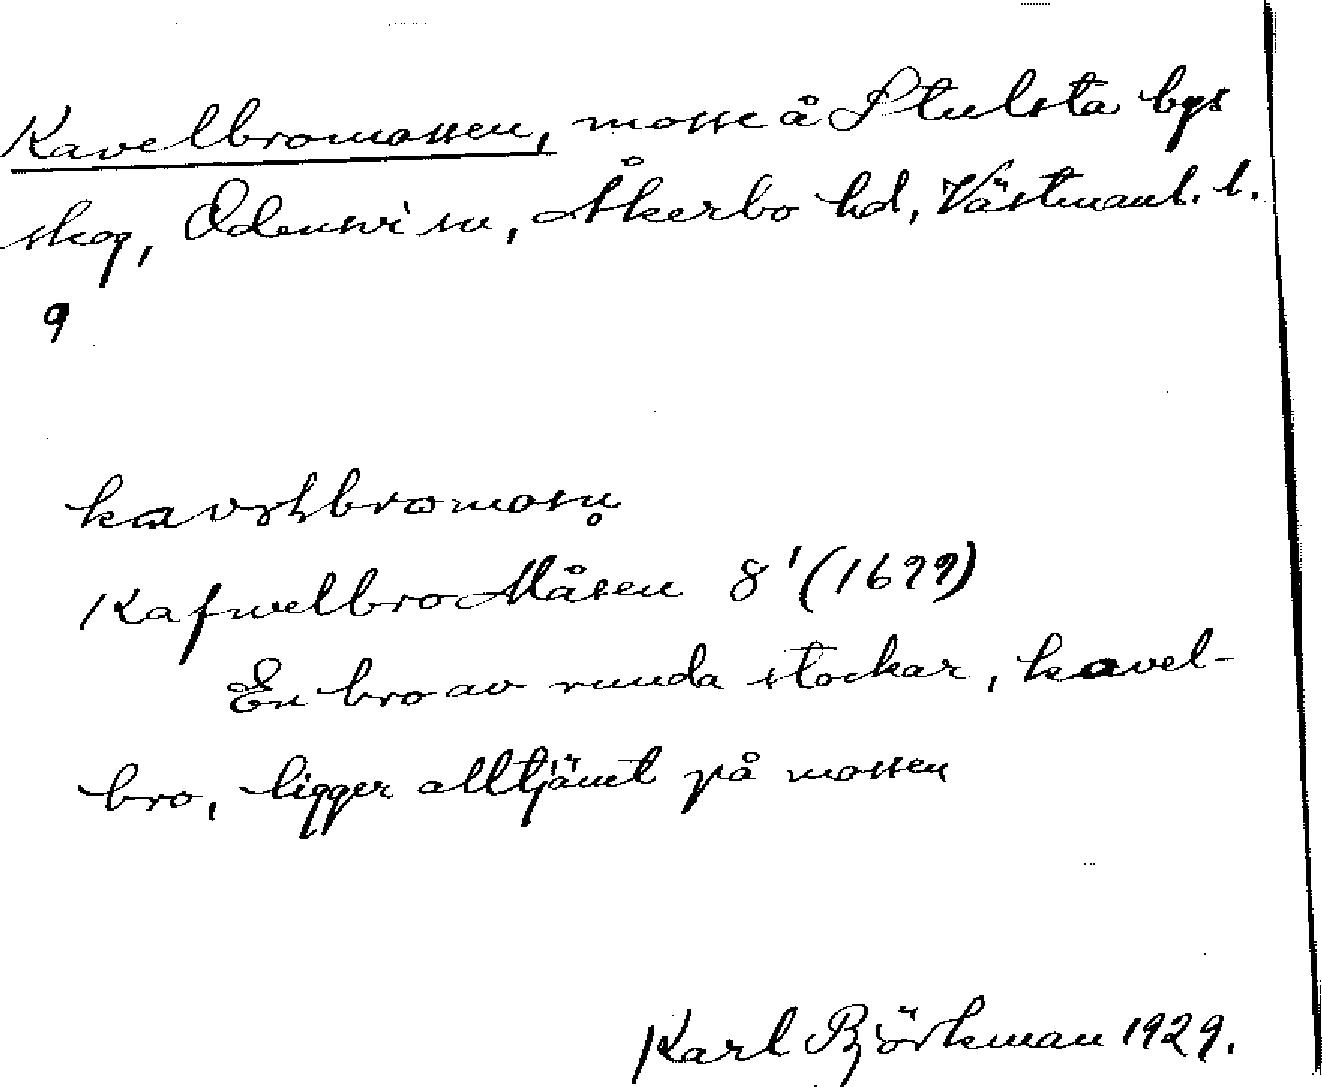 Kavelbromossen, mosse å Stulsta bys
skog, Odensvi sn, Åkerbo hd, Västmanl. l.
9
kavəlbromosn̥
Kafwelbro Måsen 8' (1699)
En bro av runda stockar, kavel-
bro, ligger alltjämt på mossen
Karl Björkman 1929.